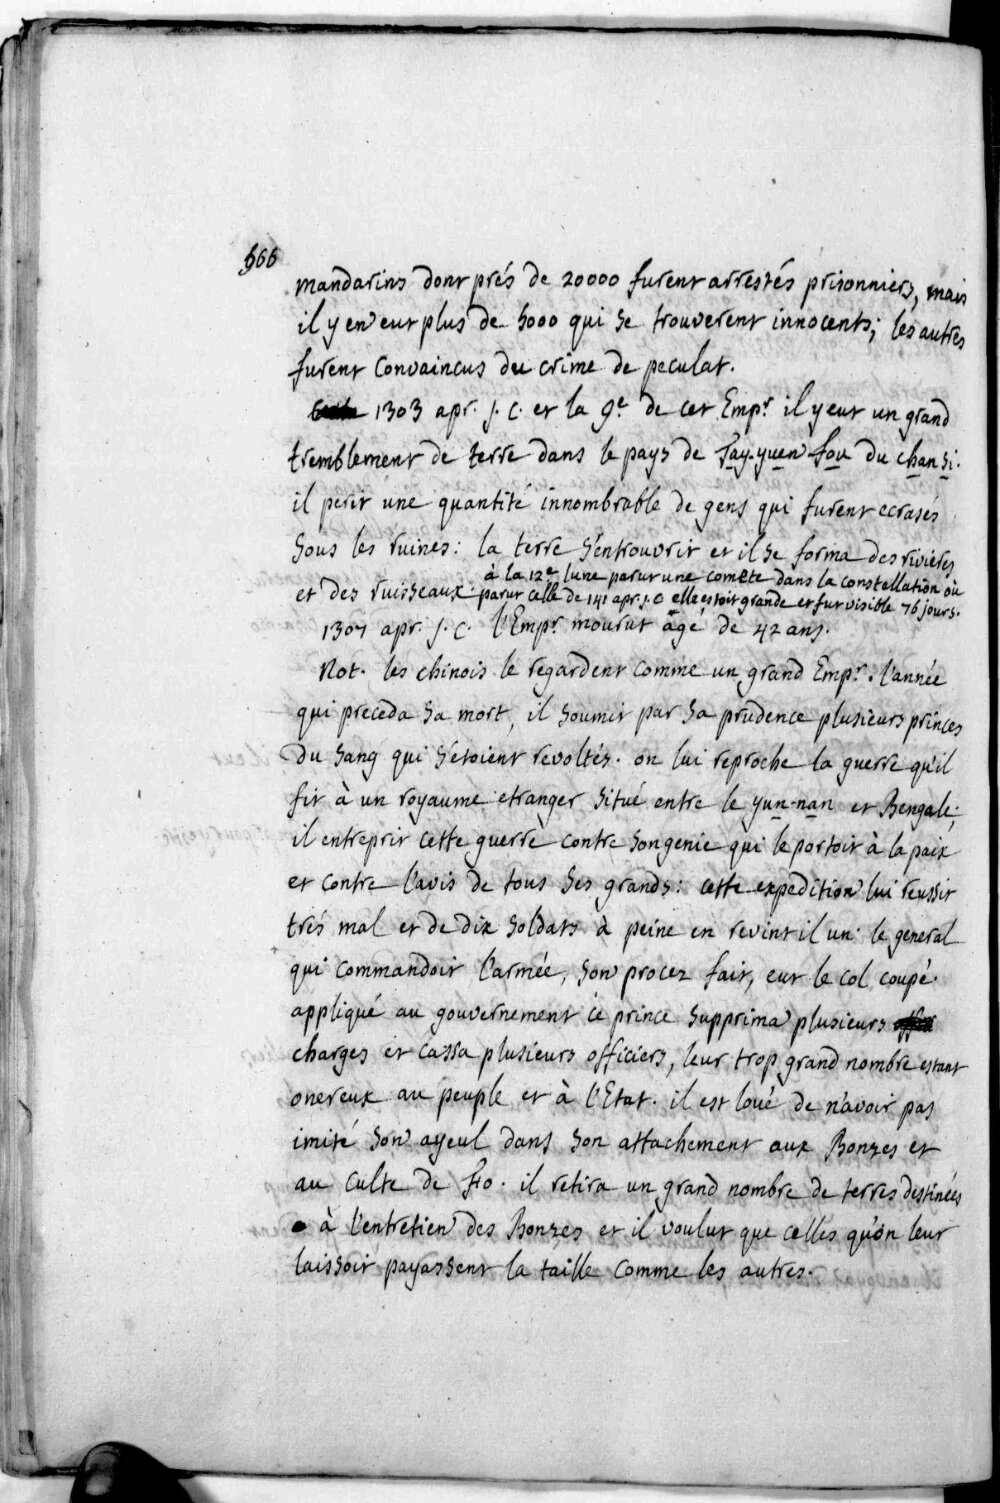 566
mandarins dont prés de 20000 furent arrestés prisonniers, mais
il y en eut plus de 5000 qui se trouverent innocents; les autres
furent convaincus du crime de peculat.
1303 apr. J. C. et la 9e de cet Empr. il y eut un grand
tremblement de terre dans le pays de Tay-yuen fou du chansi.
il perit une quantité innombrable de gens qui furent ecrasés
sous les ruines: la terre s'entrouvrit et il se forma des rivieres
et des ruisseaux. à la 12e lune parut une comete dans la constellation où
parut celle de 141 apr. J. C elle estoit grande et fut visible 76 jours.
1307 apr. J. C. l'Empr. mourut age de 42 ans.
Not. les chinois le regardent comme un grand Empr. l'année
qui preceda sa mort, il soumit par sa prudence plusieurs princes
du sang qui s'etoient revoltés. on lui reproche la guerre qu'il
fit à un royaume etranger situé entre le yun-nan et Bengale;
il entreprit cette guerre contre son genie qui le portoit à la paix
et contre l'avis de tous ses grands: cette expedition lui reussit
trés mal et de dix soldats à peine en revint il un. le general
qui commandoit l'armée, son procez fait, eut le col coupé.
appliqué au gouvernement ce prince supprima plusieurs
charges et cassa plusieurs officiers, leur trop grand nombre estant
onereux au peuple et à l'Etat. il est loué de n'avoir pas
imité son ayeul dans son attachement aux Bonzes et
au culte de Fo. il retira un grand nombre de terres destinées
à l'entretien des Bonzes et il voulut que celles qu'on leur
laissoit payassent la taille comme les autres.